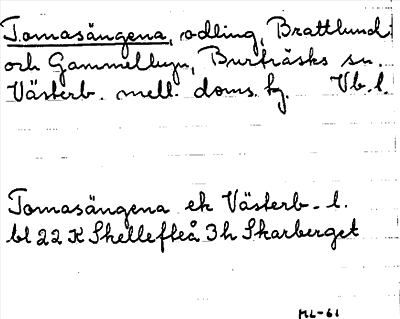 Tomasängena, odling, Brattlund
och Gammelbyn, Burträsks sn.
Västerb. mell. doms. hg. Vb. l.
Tomasängena ek Västerb. l.
bl 22 K Skellefteå 3 h Skarberget
ML-61